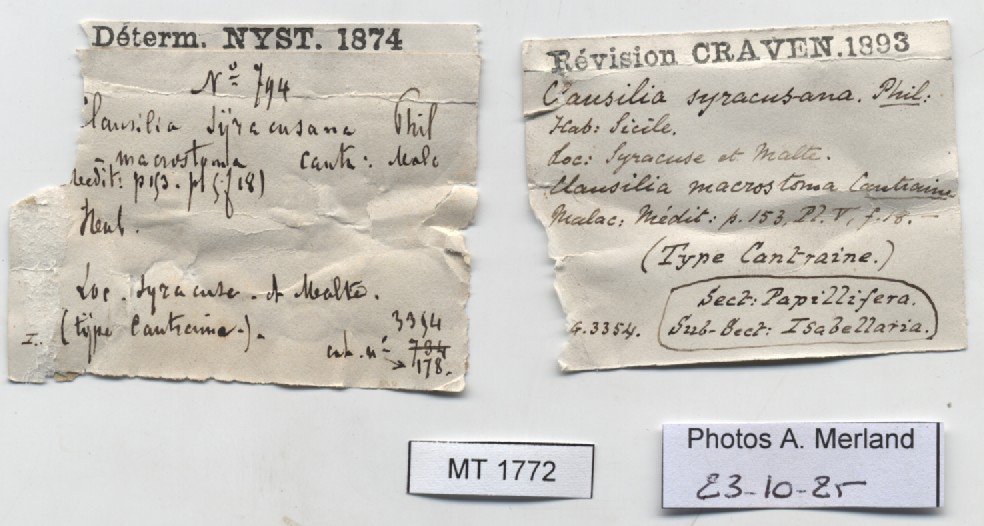 Déterm. NYST. 1874
Nº 794
Clausilia Sÿracusana Phil
macrostoma cantr: Malc
Medit: p 153. pl 5. f 18)
Loc. Syracuse. et Malte.
(tÿpe Cantraine.).
I..
3354
cat. nº 794
178.
Révision CRAVEN.1893
Clausilia syracusana. Phil:
Hab: Sicile.
Loc: Syracuse et Malte.
Clausilia macrostoma Cantraine
Malac: Médit: p. 153, Pl. V, f. 18. —
(Type Cantraine.)
Sect: Papillifera.
Sub-Sect: Isabellaria.
G. 3354.
MT 1772
Photos A. Merland
23-10-25